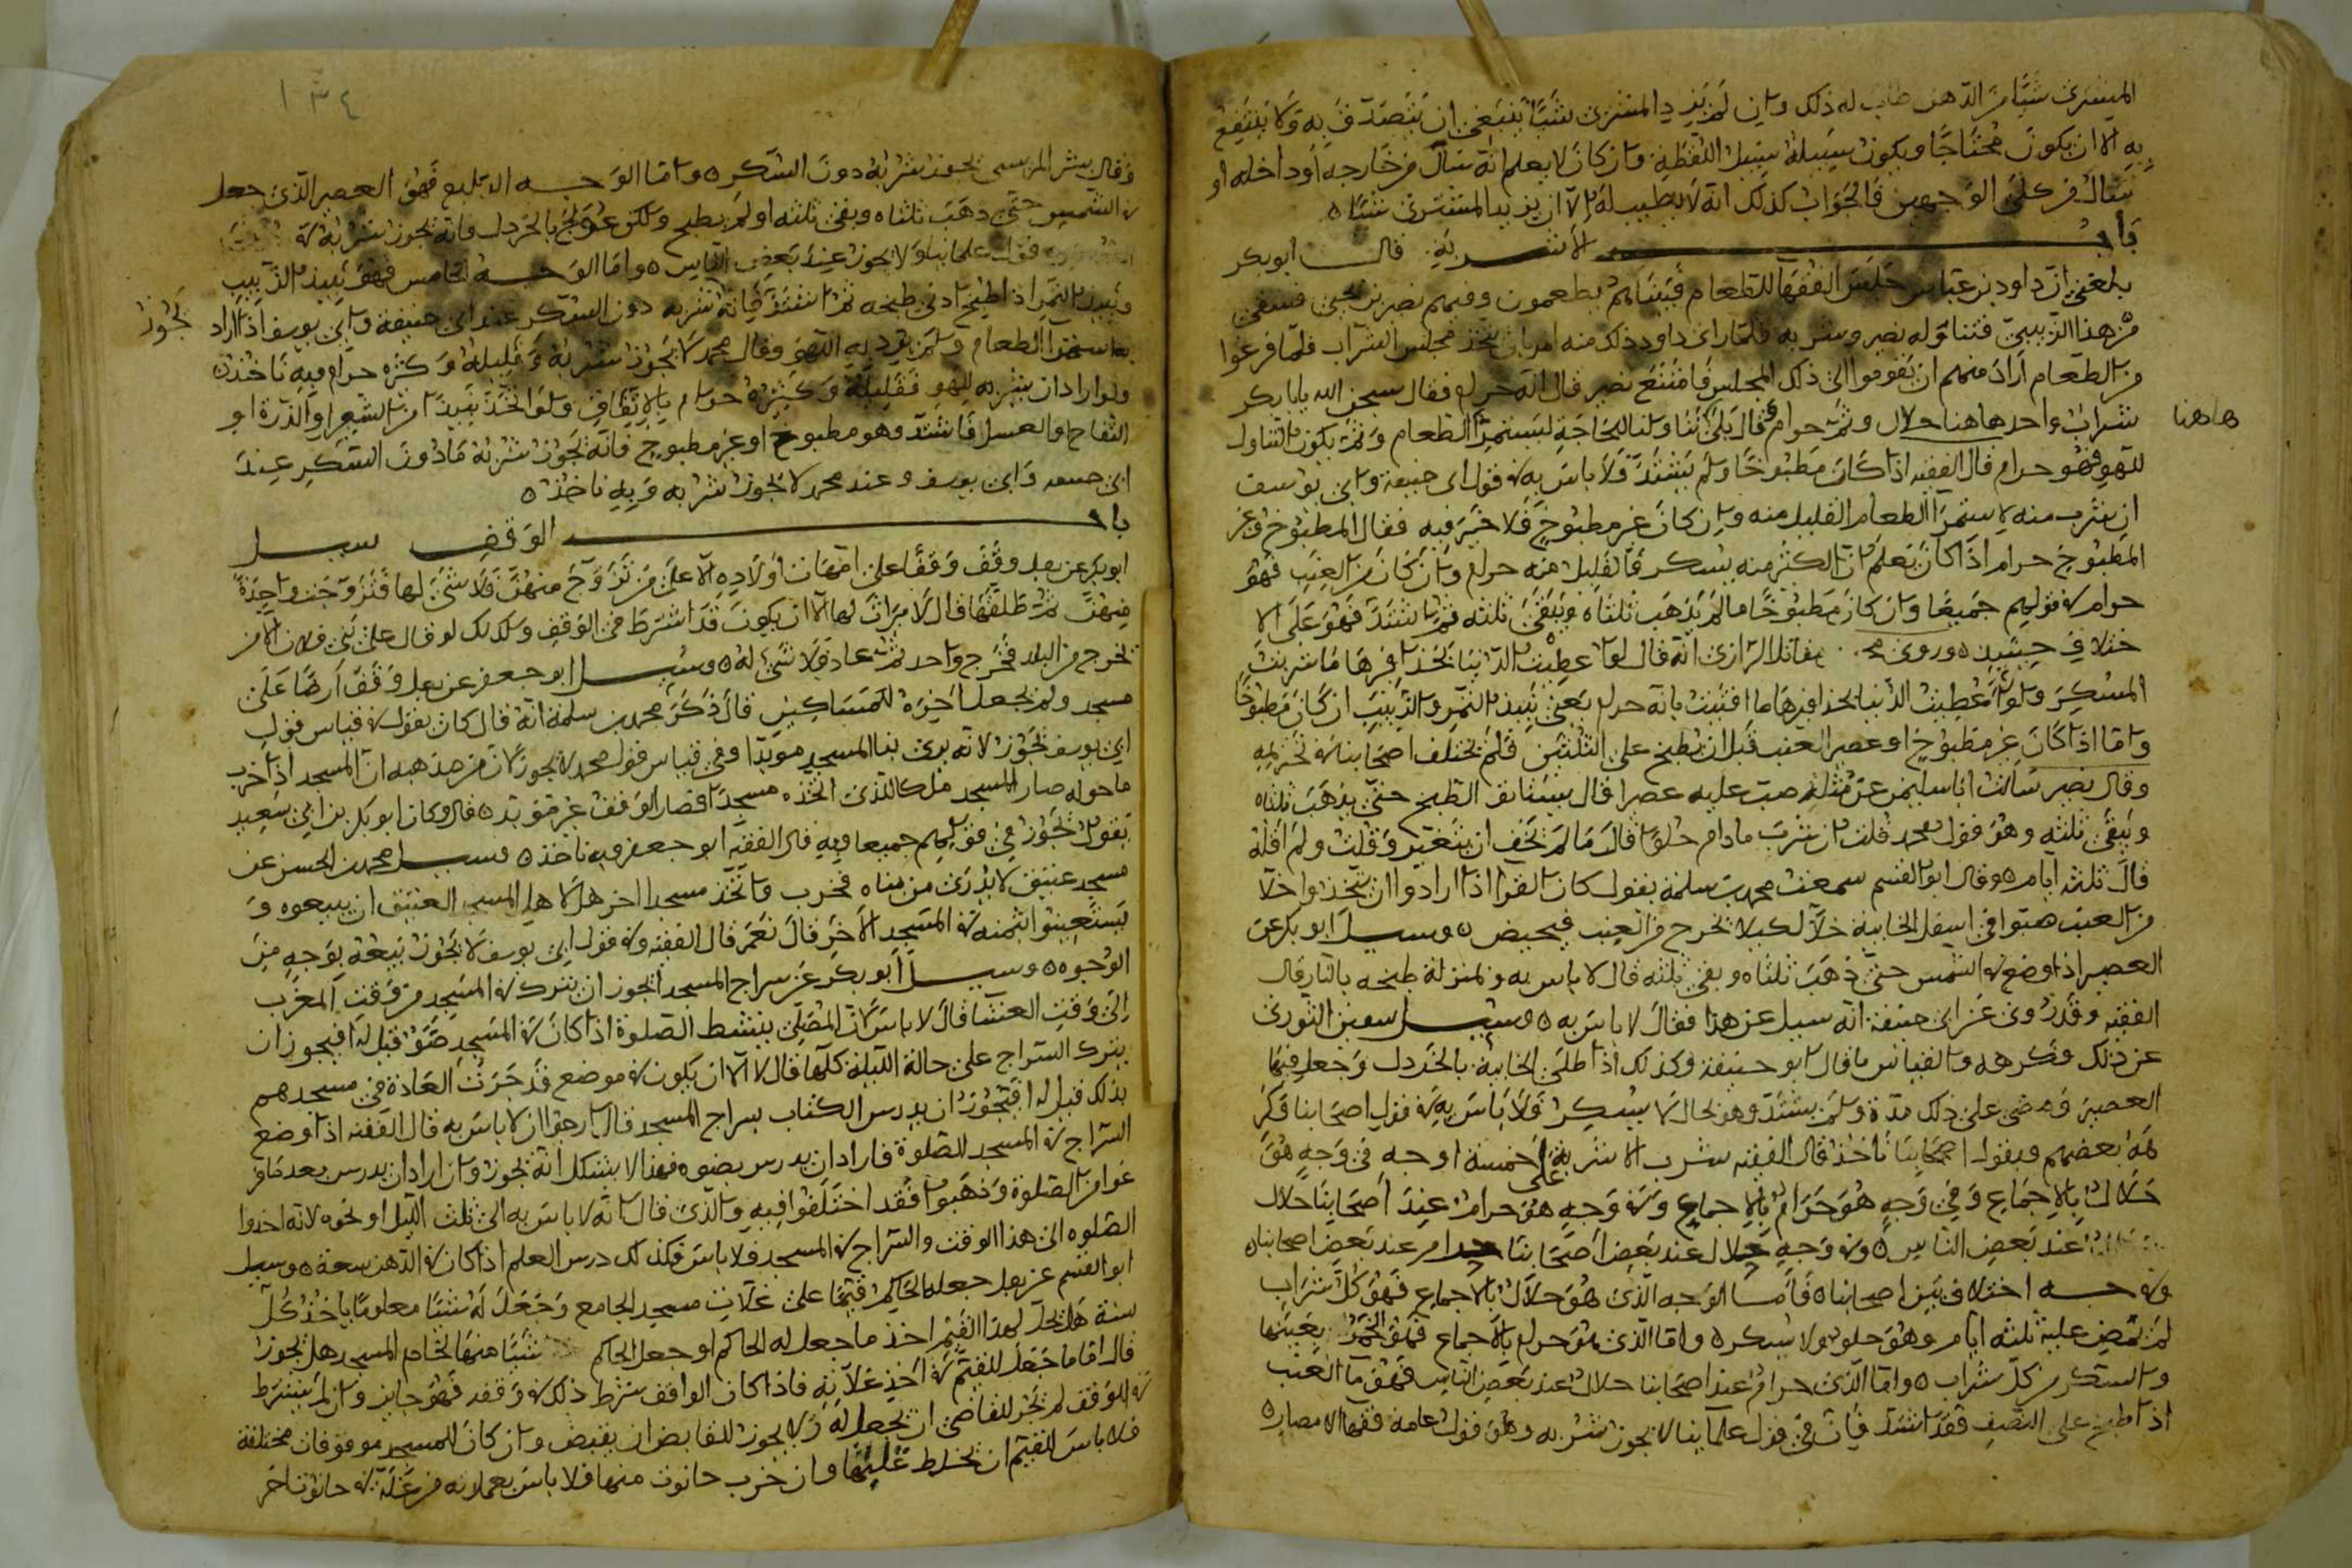 المشترى شيئا من الدهن طاب له ذلك وان لم يزيد المشترى شيئا ينبغى ان يتصدق به ولا ينتفع
به الا ان يكون محتاجا ويكون سبيله سبيل اللقطة وان كان لا يعلم انه سال من خارجه او داخله او
سال من كلى الوجهين فالجواب كذلك انه لا يطيب له الا ان يزيد المشترى شيئا
باب الاشربة قال ابو بكر
بلغنى ان داود بن عباس جلس الفقها للطعام فبينا هم يطعمون وفيهم نصير بن يحيى فسقى
من هذا الزبيبى فتناوله نصير وشربه فلما راى داود ذلك منه امر بان يتخذ مجلس الشراب فلما فرغوا
من الطعام اراد منهم ان يقوموا الى ذلك المجلس فامتنع نصير قال انه حرام فقال سبحن الله يابا بكر
شراب واحد هاهنا حلال وثم حرام قال بلى تناولنا لحاجة ليستمرئ الطعام وثم يكون التناول
هاهنا
للهو فهو حرام قال الفقيه اذا كان مطبوخا ولم يشتد فلا باس به فى قول ابى حنيفة وابى يوسف
ان شرب منه لاستمرا الطعام القليل منه وان كان غير مطبوخ فلا خير فيه فقال المطبوخ وغير
المطبوخ حرام اذا كان تعلم ان الكثير منه يسكر فالقليل منه حرام وان كان من العنب فهو
حرام فى قولهم جميعا وان كان مطبوخا ما لم يذهب ثلثاه ويبقى ثلثه ثم اشتد فهو على الا
ختلاف حينئذ وروى مقاتل الرازى انه قال لو اعطيت الدنيا بحذافيرها ما شربت
المسكر ولو اعطيت الدنيا بحذافيرها ما افتيت بانه حرام يعنى نبيذ التمر والزبيب ان كان مطبوخا
واما اذا كان غير مطبوخ او عصير العنب قبل ان يطبخ على الثلثين فلم يختلف اصحابنا فى تحريمه
وقال نصير سالت ابا سليمن عن مثلث صب عليه عصيرا قال يستانف الطبخ حتى يذهب ثلثاه
ويبقى ثلثه وهو قول محمد قلت ان شرب مادام حلوا قال ما لم تخف ان يتغير وقلت ولم اقله
قال ثلثه ايام وقال ابو القسم سمعت محمد بن سلمة يقول كان القوا اذا ارادوا ان يتخذوا خلا
من العنب صبوا فى اسفل الخابية خلا لكيلا يخرج من العنب فيحمض وسيل ابو بكر عن
العصير اذا وضع فى الشمس حتى ذهب ثلثاه وبقى ثلثه قال لا باس به وبمنزلة طبخه بالنار قال
الفقيه وقد روى عن ابى حنيفة انه سيل عن هذا فقال لا باس به وسيل سفين الثورى
عن ذلك فكرهه والقياس ما قال ابو حنيفة وكذلك اذا طلى الخابية بالخردل وجعل فيها
العصير ومضى على ذلك مدة ولم يشتد وهو بحال لا يسكر فلا باس به فى قول اصحابنا فكر
هه بعضهم وبقول اصحابنا ناخذ قال الفقيه شرب الاشربة على خمسة اوجه فى وجه هو
حلال بالاجماع وفى وجه هو حرام بالاجماع وفى وجه هو حرام عند اصحابنا حلال
عند بعض الناس وفى وجه حلال عند بعض اصحابنا حرام عند بعض اصحابنا
وفى وجه اختلاف بين اصحابنا فاما الوجه الذى هو حلال بالاجماع فهو كل شراب
لم تمض عليه ثلثه ايام وهو حلو ولا يسكر واما الذى هو حرام بالاجماع فهو الخمر بعينها
والسكر من كل شراب واما الذى حرام عند اصحابنا حلال عند بعض الناس فهو ما العنب
اذا طبخ على النصف فقد اشتد فان فى قول علماينا لا يجوز شربه وهو قول عامة فقها الامصار
١٣٤
وقال بشر المريسى يجوز شربه دون السكر واما الوجه الرابع فهو العصير الذى جعل
فى الشمس حتى ذهب ثلثاه وبقى ثلثه او لم يطبخ ولكن عولج بالخردل فانه يجوز شربه فى
قول علماينا ولا يجوز عند بعض الناس واما الوجه الخامس فهو نبيذ الزبيب
ونبيذ التمر اذا طبخ ادنى طبخه ثم اشتد فانه شربه دون السكر عند ابى حنيفة وابى يوسف اذا اراد
يجوز
به استمرا الطعام ولم يرد به اللهو وقال محمد لا يجوز شربه وقليله وكثيره حرام وبه ناخذ
ولو اراد ان يشربه للهو فقليله وكثيره حرام بالاتفاق ولو اتخذ نبيذا من الشعير او الذرة او
التفاح او العسل فاشتد وهو مطبوخ او غير مطبوخ فانه يجوز شربه ما دون السكر عند
ابى حنيفه وابى يوسف وعند محمد لا يجوز شربه وبه ناخذ
باب الوقف سيل
ابو بكر عن رجل وقف وقفا على امهات اولاده الا على من تزوج منهن فلا شى لها فتزوجت واحدة
منهن ثم طلقها قال لا ميراث لها الا ان يكون قد اشترط فى الوقف وكذلك لو قال على بنى فلان الا من
يخرج من البلد فخرج واحد ثم عاد فلا شى له وسيل ابو جعفر عن رجل وقف ارضا على
مسجد ولم يجعل اخره للمساكين قال ذكر محمد بن سلمة انه قال كان يقول فى قياس قول
ابى يوسف يجوز لانه يرى بنا المسجد مويدا وفى قياس قول محمد لا يجوز لان من مذهبه ان المسجد اذا خرب
ما حوله صار المسجد ملكا للذى اتخذه مسجدا فصار الوقف غير موبد قال وكان ابو بكر بن ابى سعيد
يقول يجوز فى قولهم جميعا وبه قال الفقيه ابو جعفر وبه ناخذ وسيل محمد بن الحسن عن
مسجد عتيق لا يدرى من بناه فخرب واتخذ مسجدا اخر هل لاهل المسجد العتيق ان يبيعوه و
يستعينوا بثمنه فى المسجد الاخر قال نعم قال الفقيه وفى قول ابى يوسف لا يجوز بيعه بوجه من
الوجوه وسيل ابو بكر عن سراج المسجد ايجوز ان يترك فى المسجد من وقت المغرب
الى وقت العشا قال لا باس لان المصلى ينشط الصلوة اذا كان فى المسجد ضوء قيل له افيجوز ان
يترك السراج على حالة الليلة كلها قال لا الا ان يكون فى موضع قد جرت العادة فى مسجدهم
بذلك قيل له افيجوز ان يدرس الكتاب بسراج المسجد قال ارجوا ان لا باس به قال الفقيه اذا وضع
السراج فى المسجد للصلوة فاراد ان يدرس بضوه فهذا لا يشكل انه يجوز وان اراد ان يدرس بعد ما فر
غوا من الصلوة وذهبوا فقد اختلفوا فيه والذى قال انه لا باس به الى ثلث الليل او نحوه لانه اخروا
الصلوه الى هذا الوقت والسراج فى المسجد فلا باس فكذلك درس العلم اذا كان فى الدهن سعة وسيل
ابو القسم عن رجل جعله الحاكم قيما على غلات مسجد الجامع وجعل له شيئا معلوما ياخذ كل
سنة هل يحل لهذا القيم اخذ ما جعل له الحاكم او جعل الحاكم شيئا منها لخادم المسجد هل يجوز
قال اما ما جعل للقيم فى اخذ غلاته فاذا كان الواقف شرط ذلك فى وقفه فهو جايز وان لم يشترط
فى الوقف لم يجز للقاضى ان يجعل له ولا يجوز للقابض ان يقبض وان كان للمسجد موقوفات مختلفة
فلا باس للقيم ان يخلط غلتها وان خرب حانوت منها فلا باس بعمارته من غلة حانوت اخر